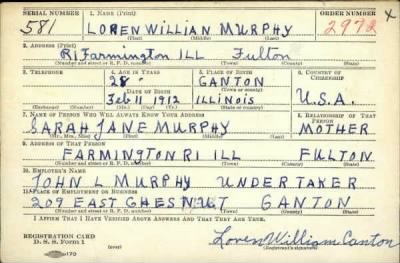 SERIAL NUMBER 1. NAME (Print) ORDER NUMBER
581 LOREN WILLIAN MURPHY 2972
(First) (Middle) (Last)
2. ADDRESS (Print)
R1 Farmington ILL Fulton
(Number and street or R. F. D. number) (Town) (County) (State)
3. TELEPHONE 4. AGE IN YEARS 5. PLACE OF BIRTH 6. COUNTRY OF
28 CANTON
(Town or county)
DATE OF BIRTH
Feb 11 1912 ILLinois U.S.A.
(Exchange) (Number) (Mo.) (Day) (Yr.) (State or country)
7. NAME OF PERSON WHO WILL ALWAYS KNOW YOUR ADDRESS 8. RELATIONSHIP OF THAT PERSON
SARAH JANE MURPHY MOTHER
(Mr., Mrs., Miss) (First) (Middle) (Last)
9. ADDRESS OF THAT PERSON
FARMINGTON R1 ILL FULTON
(Number and street or R. F. D. number) (Town) (County) (State)
10. EMPLOYER'S NAME
JOHN MURPHY UNDERTAKER
11. PLACE OF EMPLOYMENT OR BUSINESS
209 EAST CHESNUT CANTON
(Number and street or R. F. D. number) (Town) (County) (State)
I AFFIRM THAT I HAVE VERIFIED ABOVE ANSWERS AND THAT THEY ARE TRUE.
REGISTRATION CARD
D. S. S. Form 1 (over) Loren William Canton
(Registrant's signature)